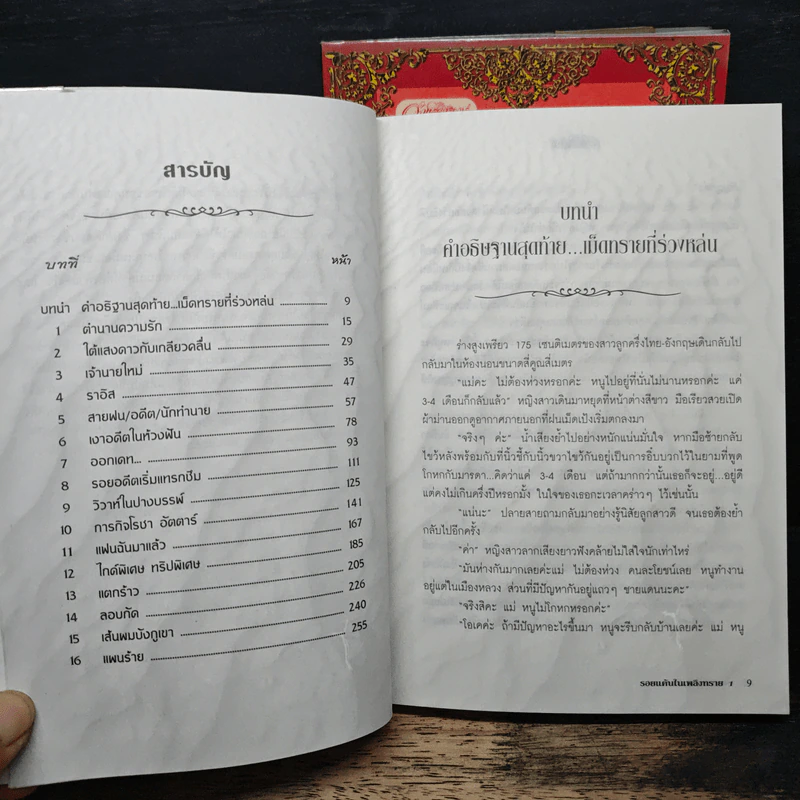 สารบัญ
บทที่ หน้า
บทนำ คำอธิฐานสุดท้าย...เม็ดทรายที่ร่วงหล่น 9
1 ตำนานความรัก 15
2 ใต้แสงดาวกับเกลียวคลื่น 29
3 เจ้านายใหม่ 35
4 ราอิส 47
5 สายฝน/อดีต/นักทำนาย 57
6 เงาอดีตในห้วงฝัน 78
7 ออกเดท... 93
8 รอยอดีตเริ่มแทรกซึม 111
9 วิวาห์ในปางบรรพ์ 125
10 ภารกิจโรฮา อัตตาร์ 141
11 แฟนฉันมาแล้ว 167
12 ไกด์พิเศษ ทริปพิเศษ 185
13 แตกร้าว 205
14 ลอบกัด 226
15 เส้นผมบังภูเขา 240
16 แผนร้าย 255
บทนำ
คำอธิษฐานสุดท้าย...เม็ดทรายที่ร่วงหล่น
ร่างสูงเพรียว 175 เซนติเมตรของสาวลูกครึ่งไทย-อังกฤษเดินกลับไป
กลับมาในห้องนอนขนาดสี่คูณสี่เมตร
"แม่คะ ไม่ต้องห่วงหรอกค่ะ หนูไปอยู่ที่นั่นไม่นานหรอกค่ะ แค่
3-4 เดือนก็กลับแล้ว" หญิงสาวเดินมาหยุดที่หน้าต่างสีขาว มือเรียวสวยเปิด
ผ้าม่านออกดูอากาศภายนอกที่ฝนเม็ดเป้งเริ่มตกลงมา
"จริงๆ ค่ะ" น้ำเสียงย้ำไปอย่างหนักแน่นมั่นใจ หากมือซ้ายกลับ
ไขว้หลังพร้อมกับที่นิ้วชี้กับนิ้วกลางไขว้กันอยู่เป็นการอิ๊บบวกไว้ในยามที่พูด
โกหกกับมารดา...คิดว่าแค่ 3-4 เดือน แต่ถ้ามากกว่านั้นเธอก็จะอยู่...อยู่ดี
แต่คงไม่เกินครึ่งปีหรอกมั้ง ในใจของเธอกะเวลาคร่าวๆ ไว้เช่นนั้น
"แน่นะ" ปลายสายถามกลับมาอย่างรู้นิสัยลูกสาวดี จนเธอต้องย้ำ
กลับไปอีกครั้ง
"ค่า" หญิงสาวลากเสียงยาวฟังคล้ายไม่ใส่ใจนักเท่าไหร่
"มันห่างกันมากเลยค่ะแม่ ไม่ต้องห่วง คนละโยชน์เลย หนูทำงาน
อยู่แต่ในเมืองหลวง ส่วนที่มีปัญหากันอยู่แถวๆ ชายแดนนะคะ"
"จริงสิคะ แม่ หนูไม่โกหกหรอกค่ะ"
"โอเคค่ะ ถ้ามีปัญหาอะไรขึ้นมา หนูจะรีบกลับบ้านเลยค่ะ แม่ หนู
รอยแค้นในเพลิงทราย 1 9